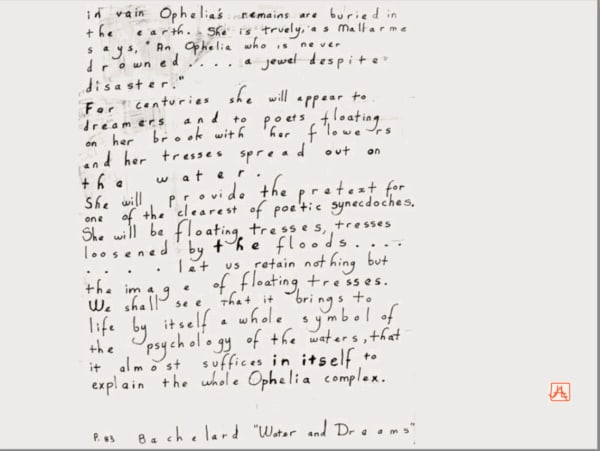 in vain Ophelia's remains are buried in
the earth. She is truely, as Mallarme
says, "An Ophelia who is never
drowned.... a jewel despite
disaster."
For centuries she will appear to
dreamers and to poets floating
on her brook with her flowers
and her tresses spread out on
the water.
She will provide the pretext for
one of the clearest of poetic synecdoches.
She will be floating tresses, tresses
loosened by the floods....
.... let us retain nothing but
the image of floating tresses.
We shall see that it brings to
life by itself a whole symbol of
the psychology of the waters, that
it almost suffices in itself to
explain the whole Ophelia complex.
P. 83 Bachelard "Water and Dreams"